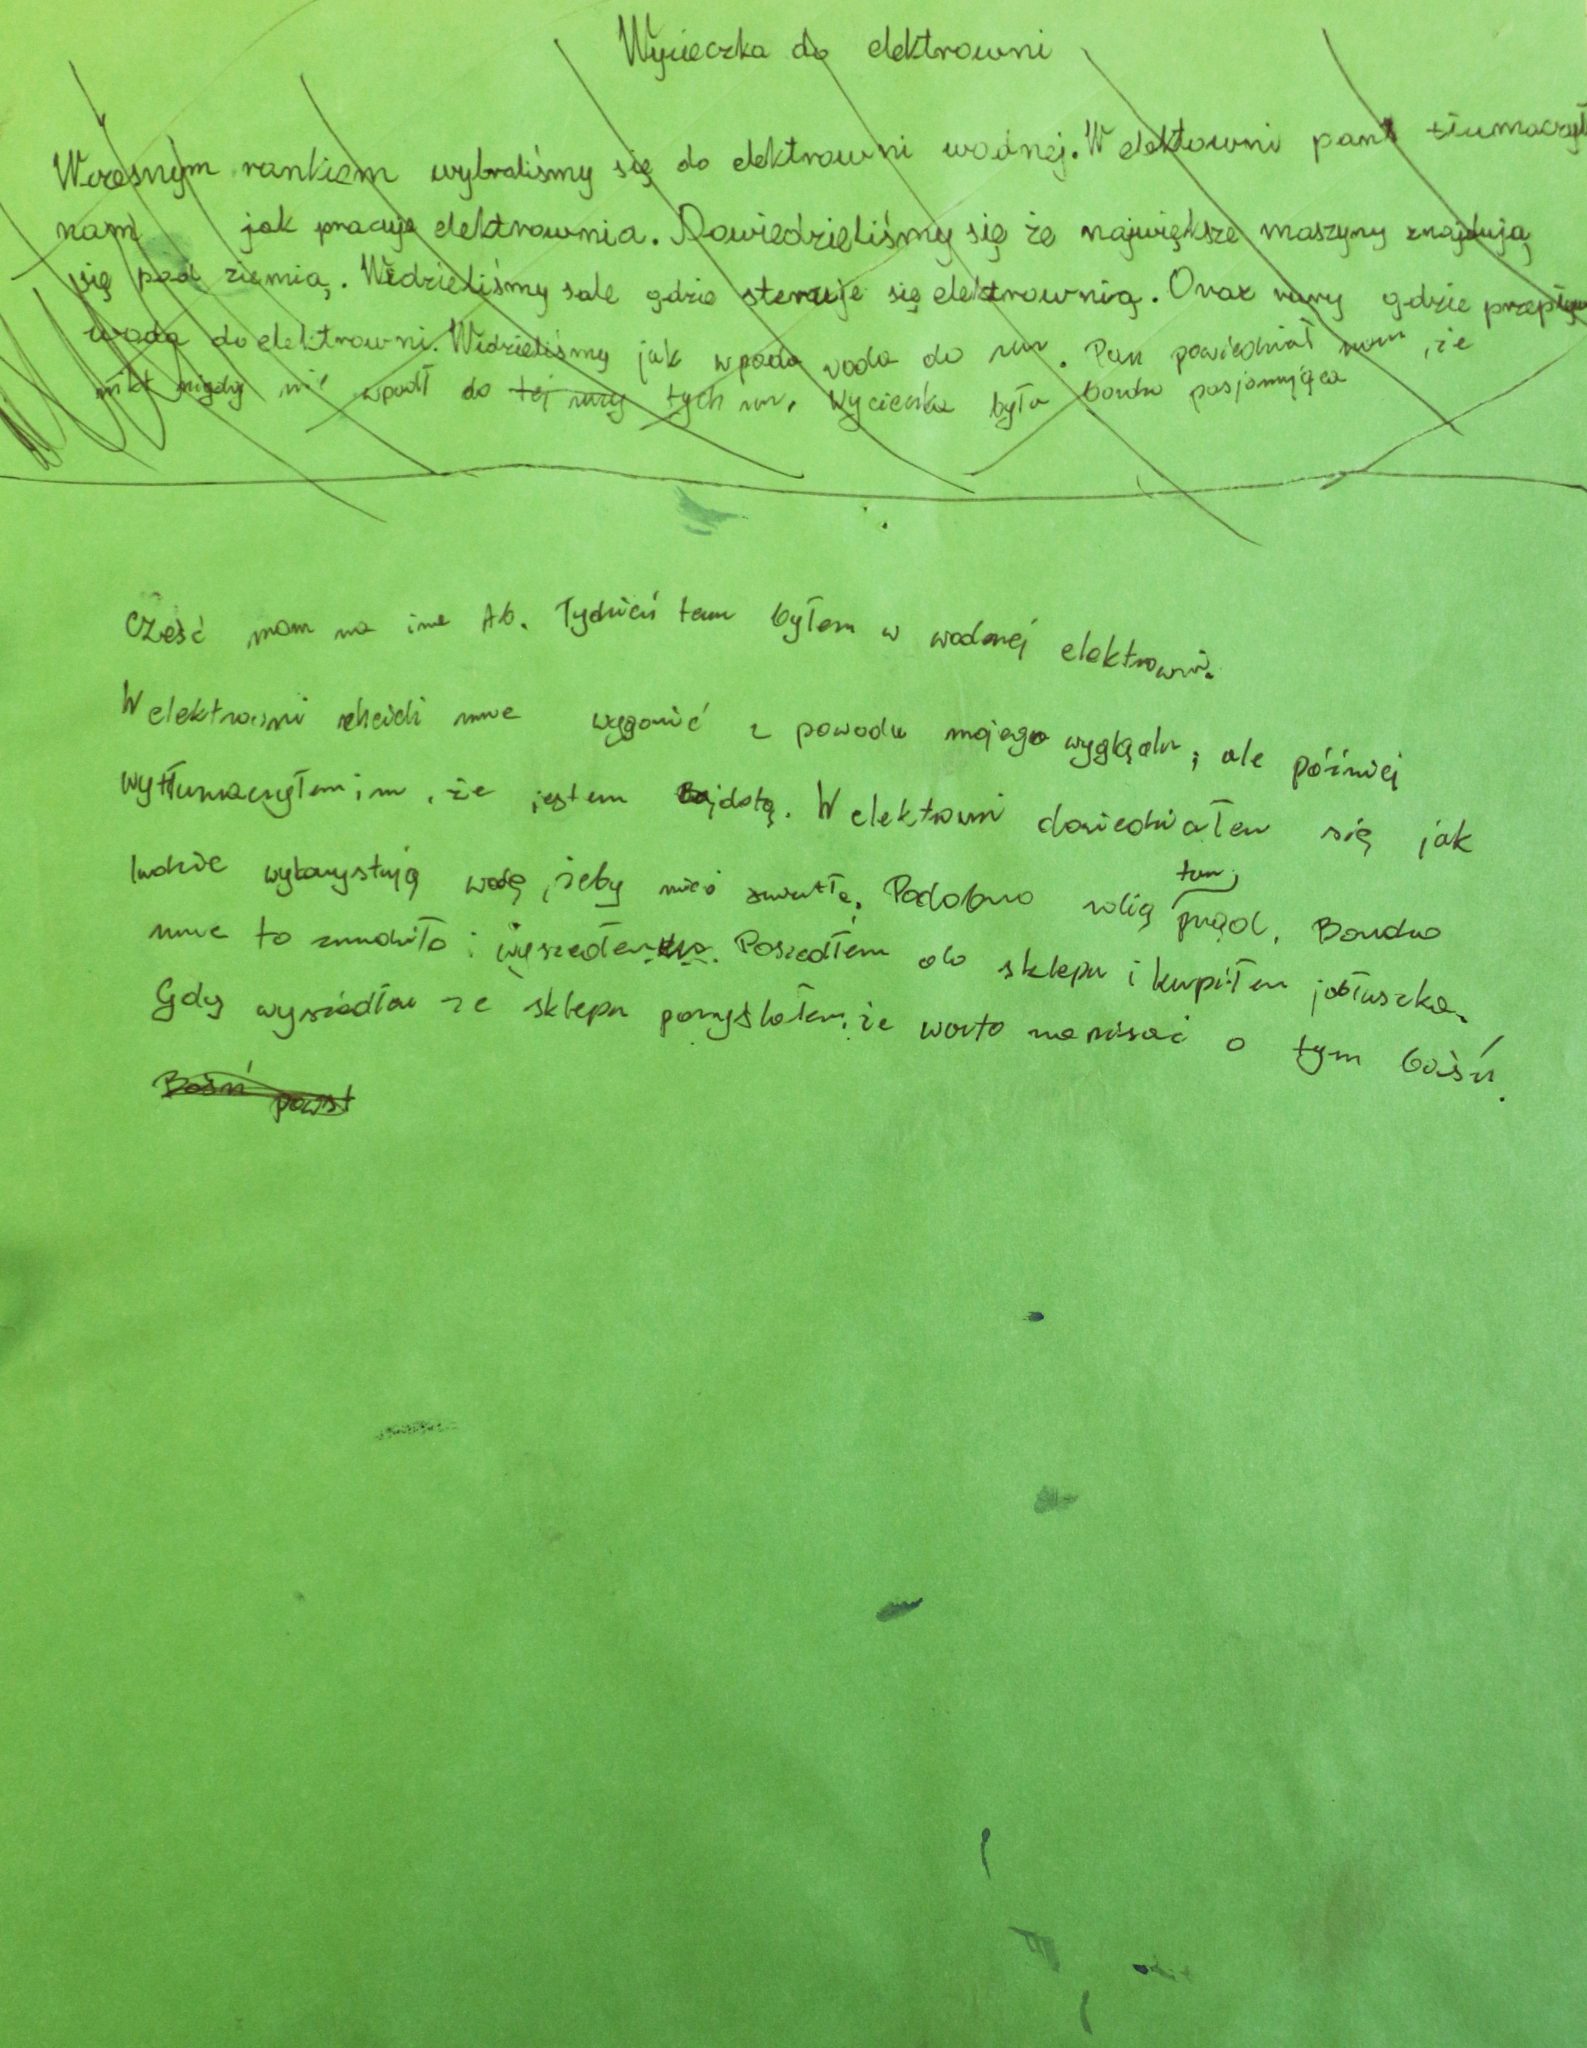 Wycieczka do elektrowni
Wczesnym rankiem wybraliśmy się do elektrowni wodnej. W elektowni pani tłumaczył
nam jak pracuje elektrownia. Dowiedzieliśmy się że największe maszyny znajdują
się pod ziemią. Widzieliśmy sale gdzie steruje się elektrownią. Oraz rury gdzie przepływ
woda do elektrowni. Widzieliśmy jak wpada woda do rur. Pan powiedział nam, że
nikt nigdy nie wpadł do tej rury tych rur. Wycieczka była bardzo pasjonująca
Cześć mam na imie Ab. Tydzień temu byłem w wodnej elektrowni.
W elektrowni chcieli mnie wygonić z powodu mojego wyglądu, ale później
wytłumaczyłem im, że jestem bajdotą. W elektrowni dowiedziałem się jak
ludzie wykorzystują wodę, żeby mieć światło. Podobno robią tam prąd. Bardzo
mnie to znudziło i wyszedłem. Poszedłem do sklepu i kupiłem jabłuszka.
Gdy wyszedłem ze sklepu pomyślałem, że warto napisać o tym baśń.
Baśń powst